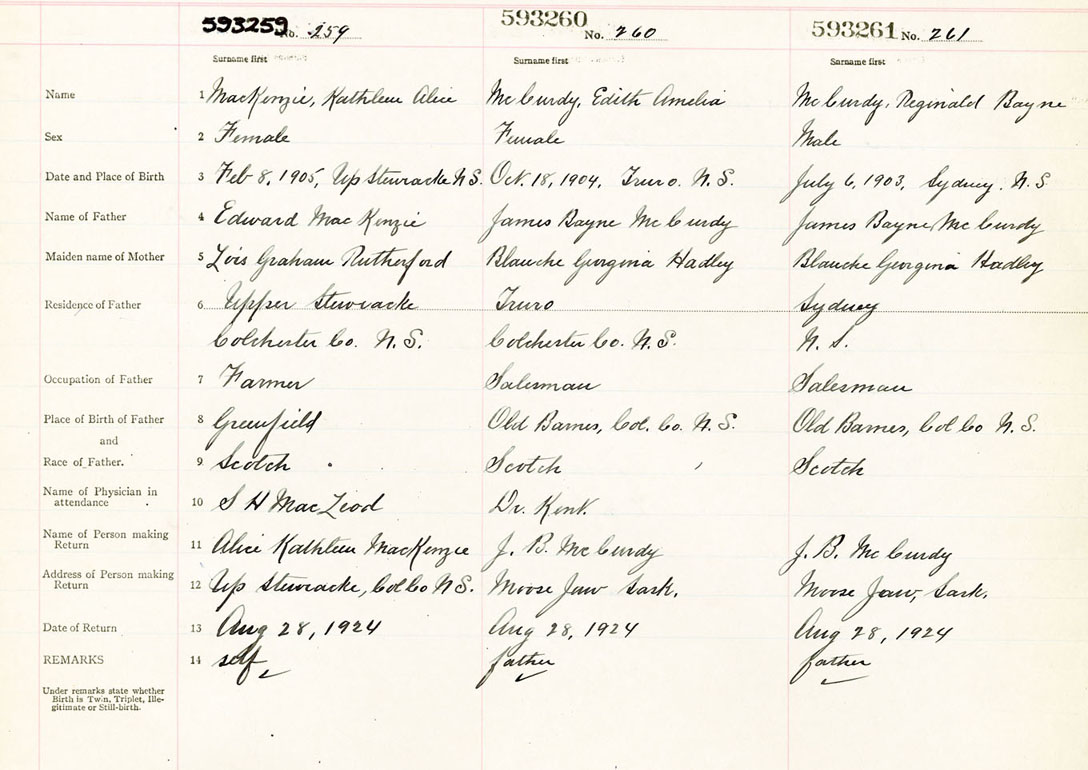 593259 No. 259 593260 No. 260 593261 No. 261
Surname first Surname first Surname first
Name 1 MacKenzie, Kathleen Alice McCurdy, Edith Amelia McCurdy, Reginald Bayne
Sex 2 Female Female Male
Date and Place of Birth 3 Feb 8, 1905, Up Stewiacke N.S. Oct. 18, 1904, Truro. N.S. July 6, 1903, Sydney. N.S
Name of Father 4 Edward MacKenzie James Bayne McCurdy James Bayne McCurdy
Maiden name of Mother 5 Lois Graham Rutherford Blanche Georgina Hadley Blanche Georgina Hadley
Residence of Father 6 Upper Stewiacke Truro Sydney
Colchester Co. N.S. Colchester Co. N.S. N.S.
Occupation of Father 7 Farmer Salesman Salesman
Place of Birth of Father 8 Greenfield Old Barnes, Col. Co. N.S. Old Barnes, Col Co N.S.
and
Race of Father. 9 Scotch Scotch Scotch
Name of Physician in
attendance 10 S H MacLeod Dr. Kent.
Name of Person making
Return 11 Alice Kathleen MacKenzie J. B. McCurdy J. B. McCurdy
Address of Person making
Return 12 Up Stewiacke, Col Co N.S. Moose Jaw Sask. Moose Jaw, Sask.
Date of Return 13 Aug 28, 1924 Aug 28, 1924 Aug 28, 1924
REMARKS 14 self father father
Under remarks state whether
Birth is Twin, Triplet, Ille-
gitimate or Still-birth.